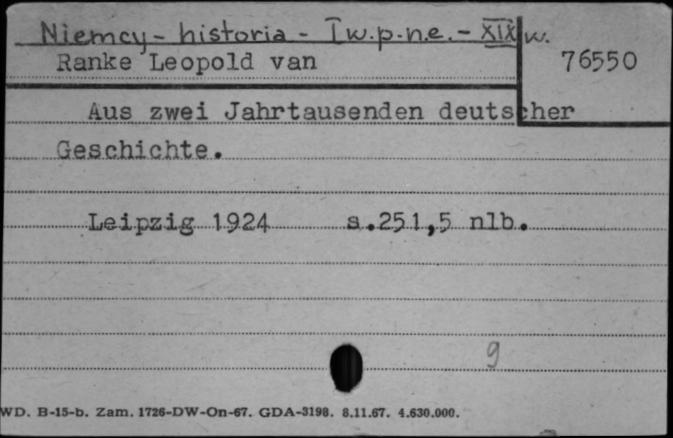 Niemcy - historia - I w.p.n.e. - XIX w.
Ranke Leopold van
76550
Aus zwei Jahrtausenden deutscher
Geschichte.
Leipzig 1924 s.251,5 nlb.
9
WD. B-15-b. Zam. 1726-DW-On-67. GDA-3198. 8.11.67. 4.630.000.